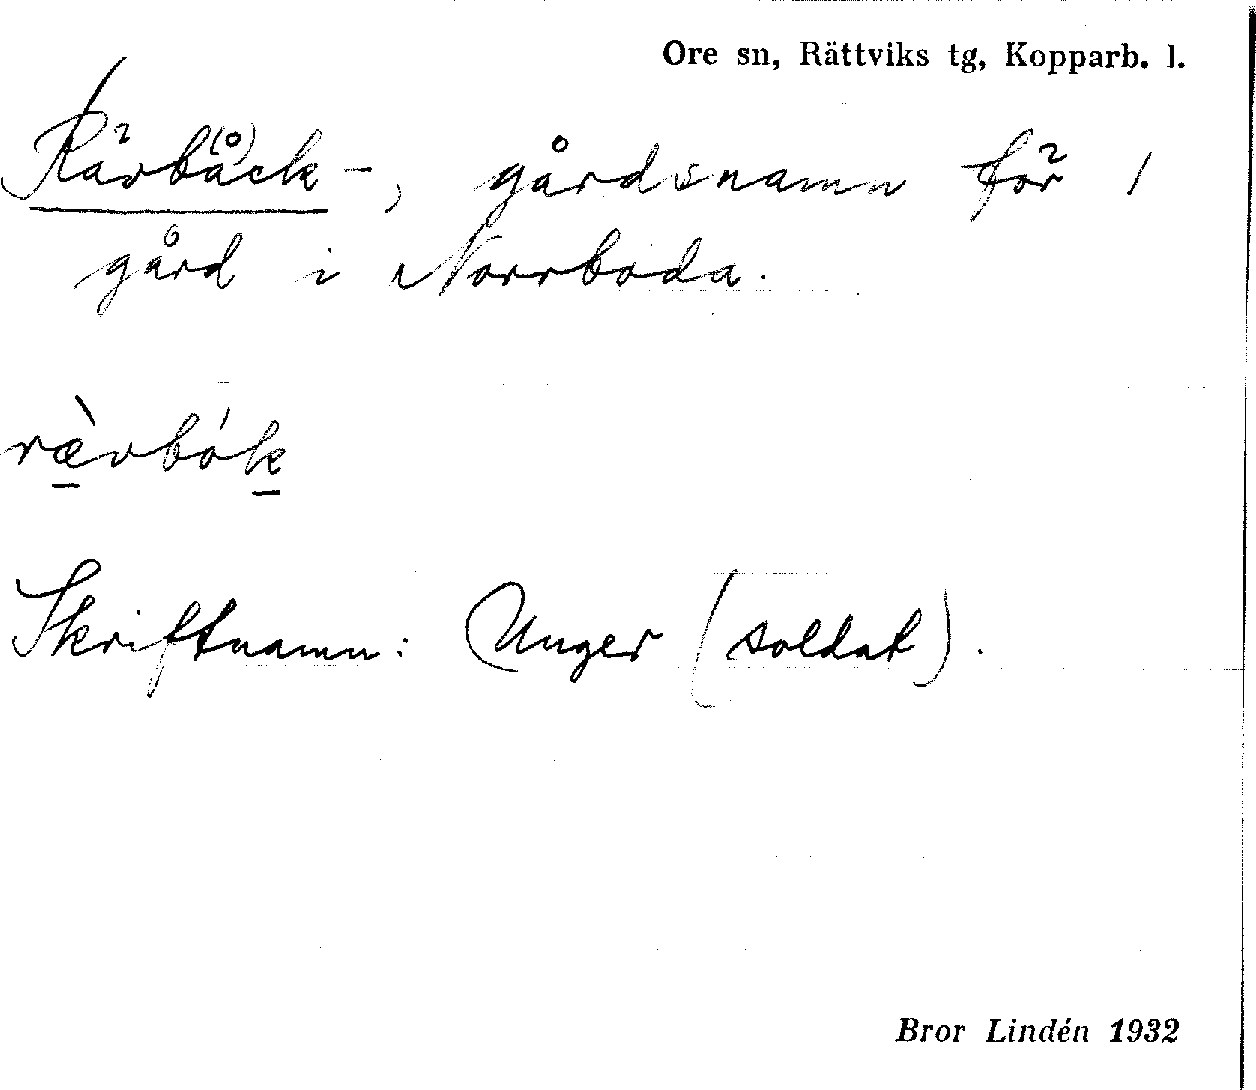 Ore sn, Rättviks tg, Kopparb. l.
Rävb(å)ck-, gårdsnamn för 1
gård i Norrboda.
rævbók
Skriftnamn: Unger (soldat).
Bror Lindén 1932